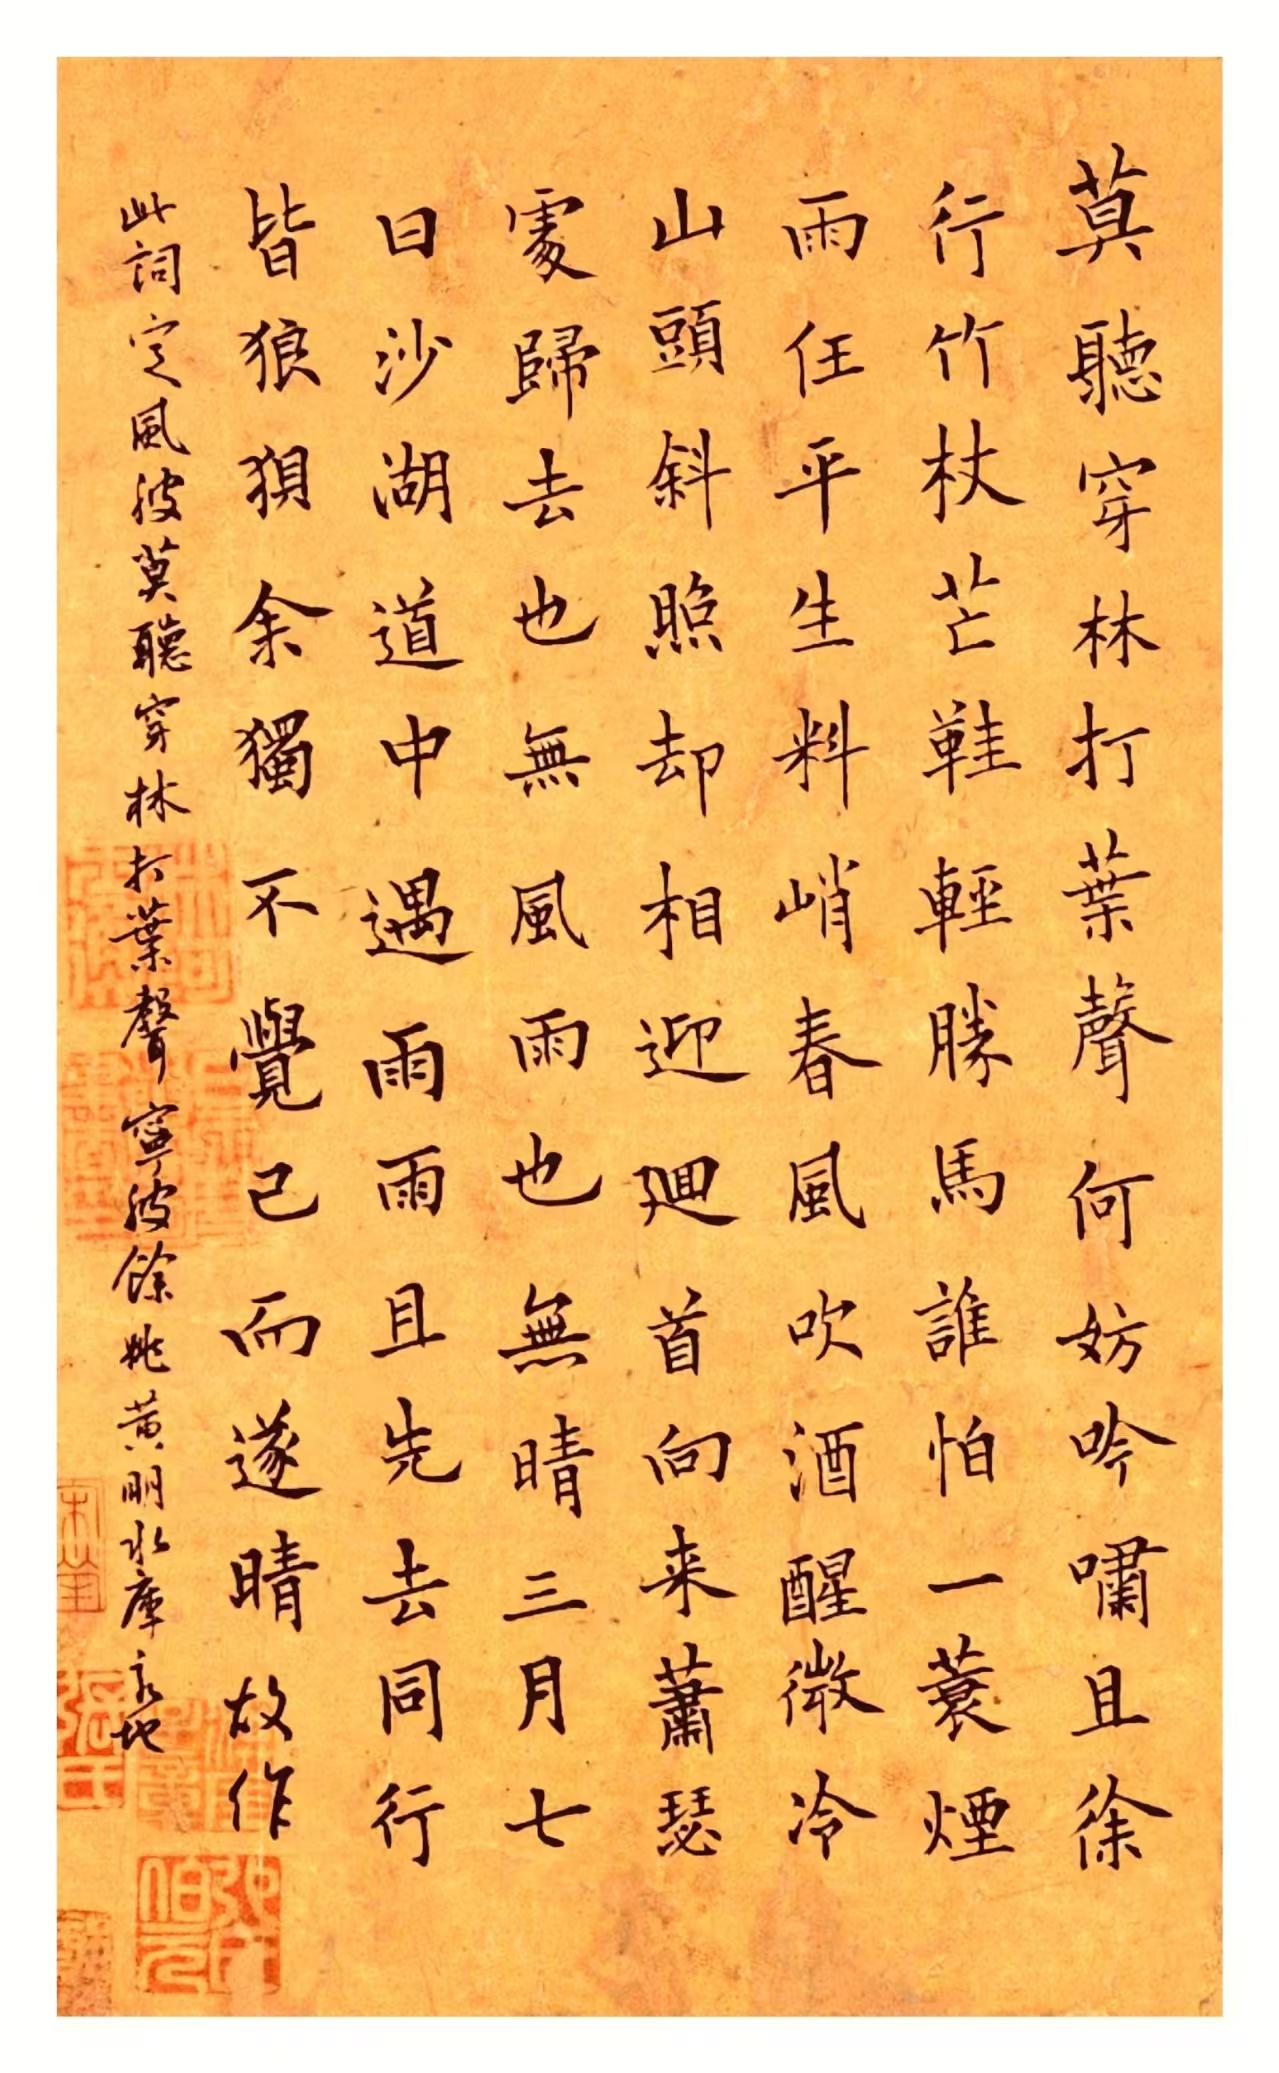 莫聽穿林打葉聲何妨吟嘯且徐
行竹杖芒鞋輕勝馬誰怕一蓑煙
雨任平生料峭春風吹酒醒微冷
山頭斜照却相迎廻首向来蕭瑟
處歸去也無風雨也無晴三月七
日沙湖道中遇雨雨且先去同行
皆狼狽余獨不覺已而遂晴故作
此詞定風波莫聽穿林打葉聲寧波餘姚黃明水庫